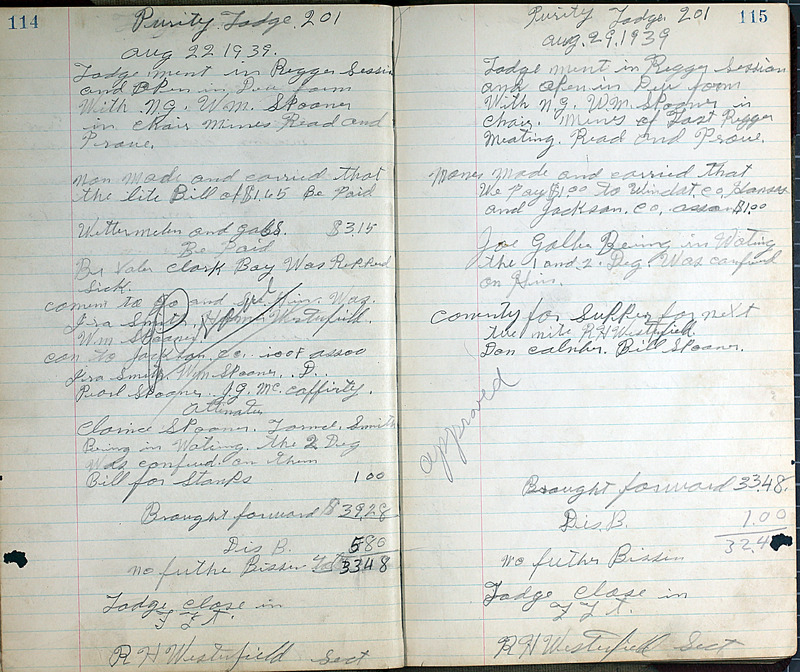 114
Purity Lodge 201
Aug 22 1939.
Lodge ment in Regger Session
and open in Due form
With N.G. W.M. Spooner
in Chair Mines Read and
Prove.
mon made and carried that
the lite Bill of $1.65 Be Paid
Wattermelen and gabs. $3.15
Be Paid
Clark Bay Was Repped
Sick.
comm to go and see Him. Was.
Ira Smith, Homer Westerfield.
Wm Spooner
com to Jackson, Co. ioof assoo
Ira Smith, Wm Spooner. D.
Pearl Spooner. J.G. Mc.caffirty.
attenates
Clarnce Spooner. Smith
Being in Wating. the 2 Deg
Was confured on Them
Bill for Stamps 1 00
Brought forward $ 39,28
Dis B. 580
no futhe Bissin 3348
Lodge close in
F L T.
R H Westerfield Sect
115
Purity Lodge 201
Aug. 29. 1939
Lodge ment in Regger Session
and open in Due form
With N.G. W M Spooner in
Chair. Mines of Last Regger
Meating. Read and Prove.
Mones Made and carried that
We pay $1.00 To Co,
and Jackson. Co, assoo $1.00
Joe Being in Wating
the 1 and 2. Deg. Was confured
on Him.
Comenty for Supper for next
Tue nite R H Westerfield
Don Bill Spooner.
approved
Brought forward 3348.
Dis. B. 1.00
32.4
no futher Bissin
Lodge close in
F L T.
R H Westerfield Sect